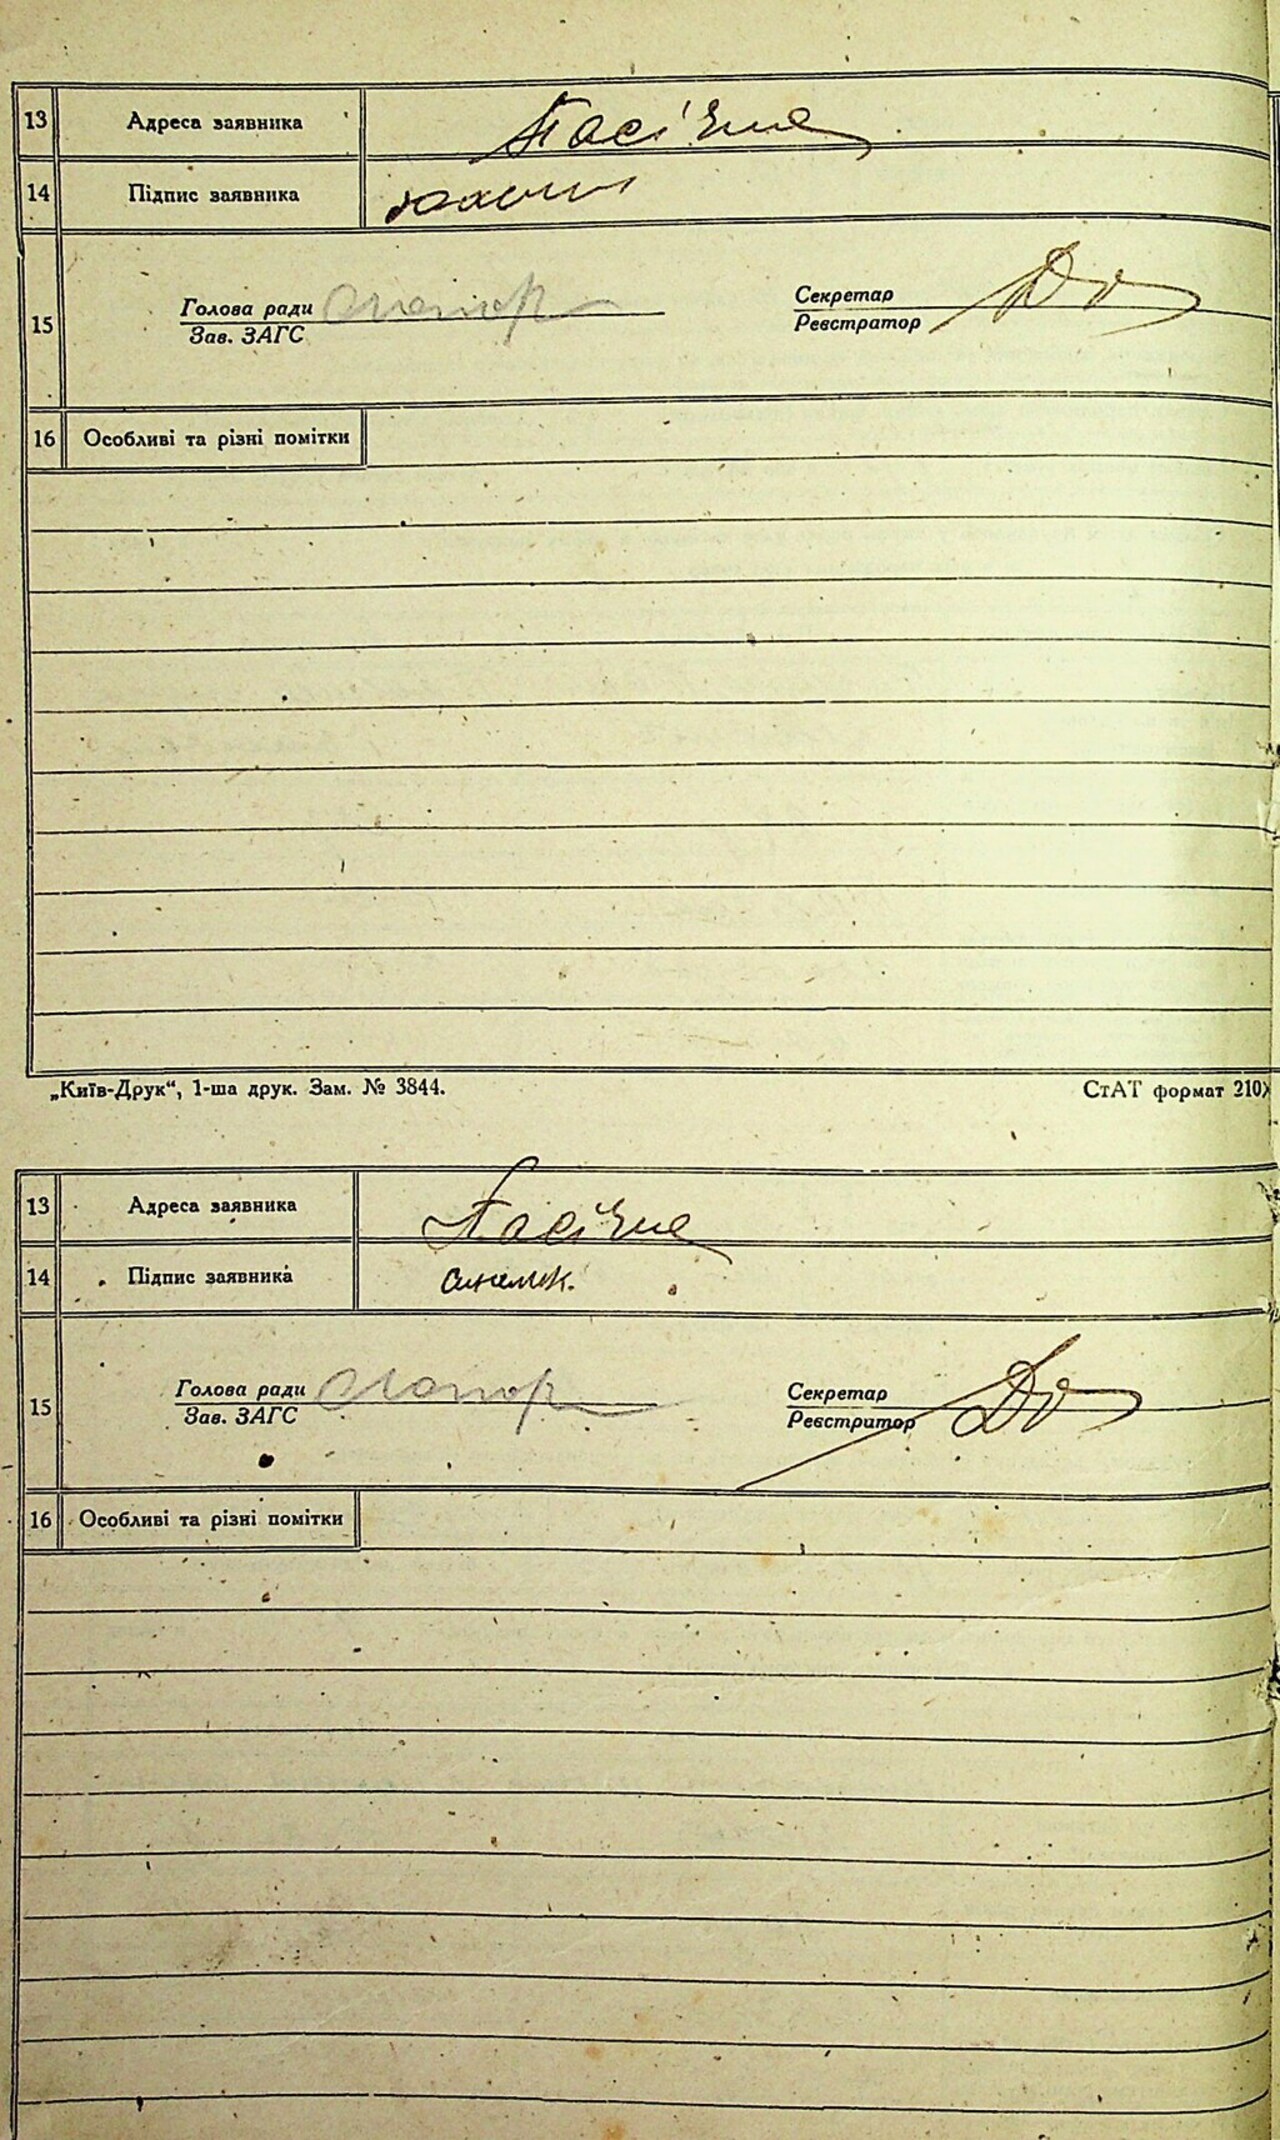 13 Адреса заявника Пасічна
14 Підпис заявника
15 Голова ради Секретар
Зав. ЗАГС Реєстратор
16 Особливі та різні помітки
„Київ-Друк“, 1-ша друк. Зам. № 3844. СтАТ формат 210
13 Адреса заявника Пасічна
14 Підпис заявника
15 Голова ради Секретар
Зав. ЗАГС Реєстритор
16 Особливі та різні помітки